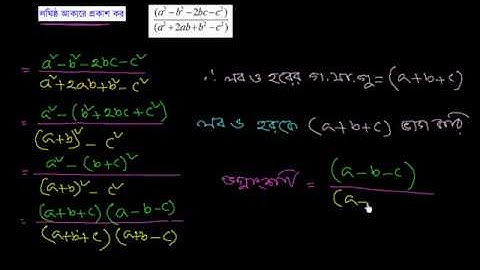 লঘিষ্ঠ আকারে প্রকাশ কর
(a²-b²-2bc-c²)
(a²+2ab+b²-c²)
= a²-b²-2bc-c²
a²+2ab+b²-c²
= a²-(b²+2bc+c²)
(a+b)²-c²
= a²-(b+c)²
(a+b)²-c²
= (a+b+c)(a-b-c)
(a+b+c)(a+b-c)
∴ লব ও হরের গ.সা.গু = (a+b+c)
লব ও হরকে (a+b+c) ভাগ করি
= (a-b-c)
(a-